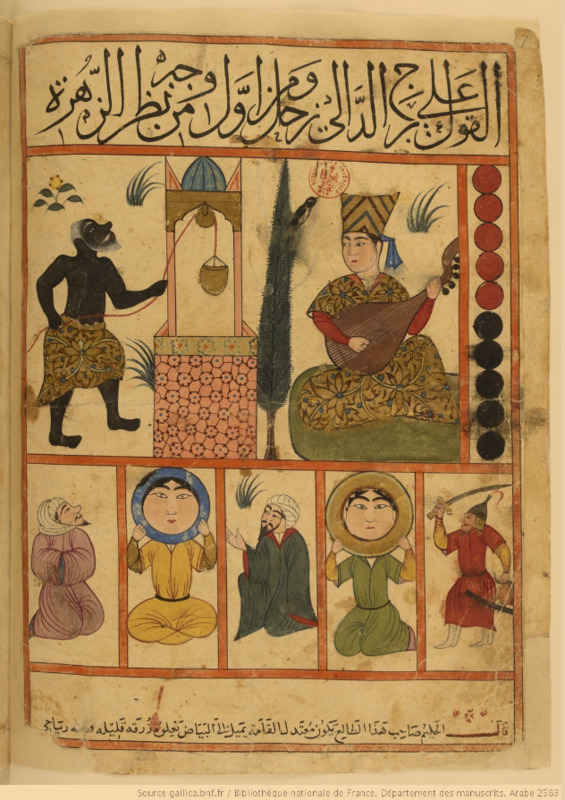 7
القول على برج الدالي زحل وم اول وجه من نظر الزهرة
قال الحكيم صاحب هذا الطالع يكون معتدل القامة يميل الى البياض تعلوه زرقه قليله
Source gallica.bnf.fr / Bibliothèque nationale de France. Département des manuscrits. Arabe 2583